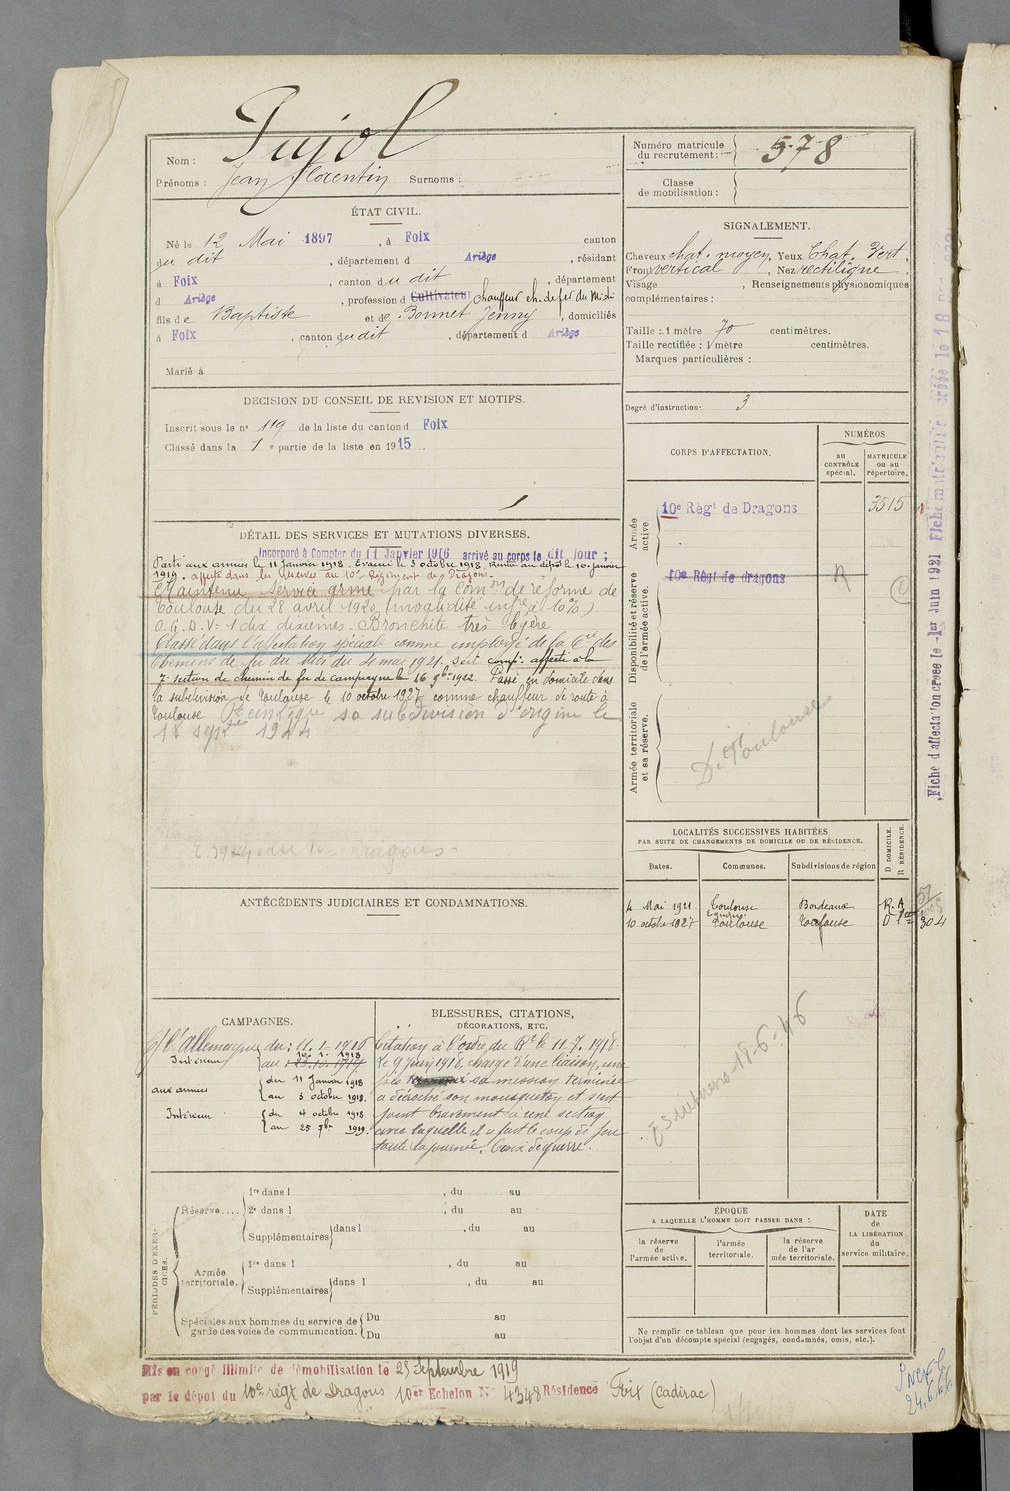 Nom : Pujol
Prénoms : Jean Florentin Surnoms :
Numéro matricule du recrutement : 578
Classe de mobilisation :
ÉTAT CIVIL.
Né le 12 Mai 1897, à Foix canton
du dit, département d Ariège, résidant
à Foix, canton du dit, département
d Ariège, profession d Cultivateur chauffeur ch. de fer du Midi
fils de Baptiste et de Bonnet Jenny, domiciliés
à Foix, canton du dit, département d Ariège
Marié à
SIGNALEMENT.
Cheveux chat. moyen, Yeux Chat. Vert.
Front vertical, Nez rectiligne.
Visage , Renseignements physionomiques
complémentaires :
Taille : 1 mètre 70 centimètres.
Taille rectifiée : 1 mètre centimètres.
Marques particulières :
Degré d'instruction : 3
DÉCISION DU CONSEIL DE REVISION ET MOTIFS.
Inscrit sous le n° 119 de la liste du canton d Foix
Classé dans la 1e partie de la liste en 1915.
CORPS D'AFFECTATION.
NUMÉROS
au CONTRÔLE spécial.
MATRICULE ou au répertoire.
Armée active.
10e Régt de Dragons 3515
Disponibilité et réserve de l'armée active.
10e Régt de dragons R
Armée territoriale et sa réserve.
D. et Toulouse
DÉTAIL DES SERVICES ET MUTATIONS DIVERSES.
Incorporé à Compter du 11 Janvier 1916 arrivé au corps le dit jour ;
Parti aux armées le 11 Janvier 1918. Evacué le 3 octobre 1918. Rentré au dépôt le 10 janvier
1919. affecté dans les réserves au 10e Régiment de Dragons.
Maintenu service armé par la Comon de réforme de
Toulouse du 28 avril 1920 (invalidité infre à 10%)
O.G.D.V= 1 dix dixièmes. Bronchite très légère
Classé dans l'affectation spéciale comme employé de la Cie des
Chemins de fer du Midi du 4 mai 1921. soit compt affecté à la
7e section de chemin de fer de campagne le 16 9bre 1922. Passé en domicile dans
la subdivision de Toulouse le 10 octobre 1927 comme chauffeur de route à
Toulouse Réintègre sa subdivision d'origine le
18 septbre 1944
LOCALITÉS SUCCESSIVES HABITÉES
PAR SUITE DE CHANGEMENTS DE DOMICILE OU DE RÉSIDENCE.
Dates. Communes. Subdivisions de région D DOMICILE. R RÉSIDENCE.
4 Mai 1921 Toulouse Bordeaux R. A
10 octobre 1927 Toulouse Toulouse D 304
18-6-46
ANTÉCÉDENTS JUDICIAIRES ET CONDAMNATIONS.
CAMPAGNES.
c/ l'Allemagne du : 11.1.1916
Intérieur au 10.1.1918
aux armées du 11 Janvier 1918
au 3 octobre 1918.
Intérieur du 4 octobre 1918
au 25 7bre 1919.
BLESSURES, CITATIONS,
DÉCORATIONS, ETC.
Citation à l'ordre du Rt le 11.7.1918.
Le 9 Juin 1918, chargé d'une liaison, une
fois sa mission terminée
a décroché son mousqueton et s'est
joint bravement à une section
avec laquelle il a fait le coup de feu
toute la journée. Croix de guerre.
PÉRIODES D'EXERCICES.
Réserve....
1re dans l , du au
2e dans l , du au
Supplémentaires dans l , du au
Armée territoriale.
1re dans l , du au
Supplémentaires dans l , du au
Spéciales aux hommes du service de garde des voies de communication.
Du au
Du au
ÉPOQUE
A LAQUELLE L'HOMME DOIT PASSER DANS :
la réserve de l'armée active.
l'armée territoriale.
la réserve de l'armée territoriale.
DATE de LA LIBÉRATION du service militaire.
Ne remplir ce tableau que pour les hommes dont les services font
l'objet d'un décompte spécial (engagés, condamnés, omis, etc.).
Mis en congé illimité de démobilisation le 25 Septembre 1919
par le dépôt du 10e régt de Dragons 10er Echelon N° 4348 Résidence Foix (Cadirac)
Fiche d'affectation créée le 1er Juin 1921